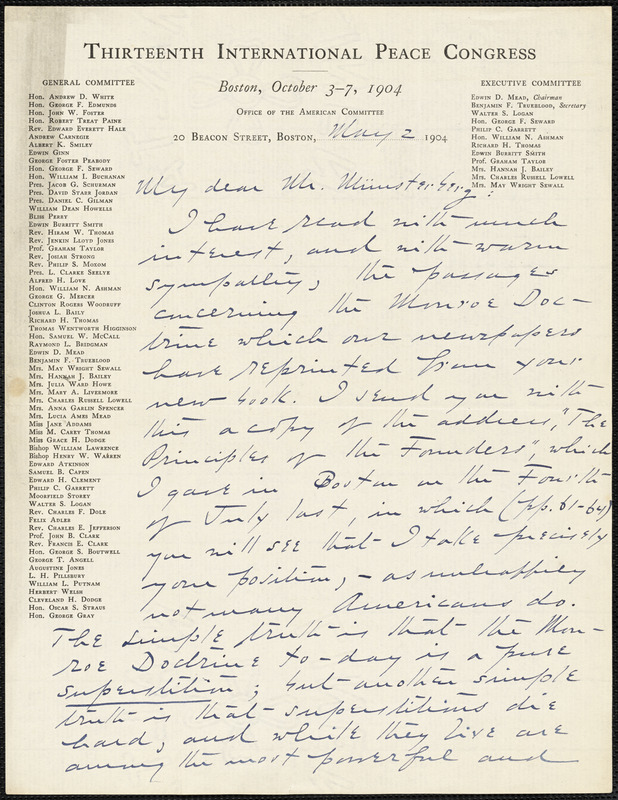 THIRTEENTH INTERNATIONAL PEACE CONGRESS
Boston, October 3-7, 1904
OFFICE OF THE AMERICAN COMMITTEE
20 BEACON STREET, BOSTON, May 2 1904
GENERAL COMMITTEE
HON. ANDREW D. WHITE
HON. GEORGE F. EDMUNDS
HON. JOHN W. FOSTER
HON. ROBERT TREAT PAINE
REV. EDWARD EVERETT HALE
ANDREW CARNEGIE
ALBERT K. SMILEY
EDWIN GINN
GEORGE FOSTER PEABODY
HON. GEORGE F. SEWARD
HON. WILLIAM I. BUCHANAN
PRES. JACOB G. SCHURMAN
PRES. DAVID STARR JORDAN
PRES. DANIEL C. GILMAN
WILLIAM DEAN HOWELLS
BLISS PERRY
EDWIN BURRITT SMITH
REV. HIRAM W. THOMAS
REV. JENKIN LLOYD JONES
PROF. GRAHAM TAYLOR
REV. JOSIAH STRONG
REV. PHILIP S. MOXOM
PRES. L. CLARKE SEELYE
ALFRED H. LOVE
HON. WILLIAM N. ASHMAN
GEORGE G. MERCER
CLINTON ROGERS WOODRUFF
JOSHUA L. BAILY
RICHARD H. THOMAS
THOMAS WENTWORTH HIGGINSON
HON. SAMUEL W. MCCALL
RAYMOND L. BRIDGMAN
EDWIN D. MEAD
BENJAMIN F. TRUEBLOOD
MRS. MAY WRIGHT SEWALL
MRS. HANNAH J. BAILEY
MRS. JULIA WARD HOWE
MRS. MARY A. LIVERMORE
MRS. CHARLES RUSSELL LOWELL
MRS. ANNA GARLIN SPENCER
MRS. LUCIA AMES MEAD
MISS JANE ADDAMS
MISS M. CAREY THOMAS
MISS GRACE H. DODGE
BISHOP WILLIAM LAWRENCE
BISHOP HENRY W. WARREN
EDWARD ATKINSON
SAMUEL B. CAPEN
EDWARD H. CLEMENT
PHILIP C. GARRETT
MOORFIELD STOREY
WALTER S. LOGAN
REV. CHARLES F. DOLE
FELIX ADLER
REV. CHARLES E. JEFFERSON
PROF. JOHN B. CLARK
REV. FRANCIS E. CLARK
HON. GEORGE S. BOUTWELL
GEORGE T. ANGELL
AUGUSTINE JONES
L. H. PILLSBURY
WILLIAM L. PUTNAM
HERBERT WELSH
CLEVELAND H. DODGE
HON. OSCAR S. STRAUS
HON. GEORGE GRAY
EXECUTIVE COMMITTEE
EDWIN D. MEAD, Chairman
BENJAMIN F. TRUEBLOOD, Secretary
WALTER S. LOGAN
HON. GEORGE F. SEWARD
PHILIP C. GARRETT
HON. WILLIAM N. ASHMAN
RICHARD H. THOMAS
EDWIN BURRITT SMITH
PROF. GRAHAM TAYLOR
MRS. HANNAH J. BAILEY
MRS. CHARLES RUSSELL LOWELL
MRS. MAY WRIGHT SEWALL
My dear Mr. Münsterberg:
I have read with much
interest, and with warm
sympathy, the passages
concerning the Monroe Doc-
trine which our newspapers
have reprinted from your
new book. I send you with
this a copy of the address, "The
Principles of the Founders", which
I gave in Boston on the Fourth
of July last, in which (pp. 61-64)
you will see that I take precisely
your position, - as unhappily
not many Americans do.
The simple truth is that the Mon-
roe Doctrine to-day is a pure
superstition; but another simple
truth is that superstitions die
hard, and while they live are
among the most powerful and